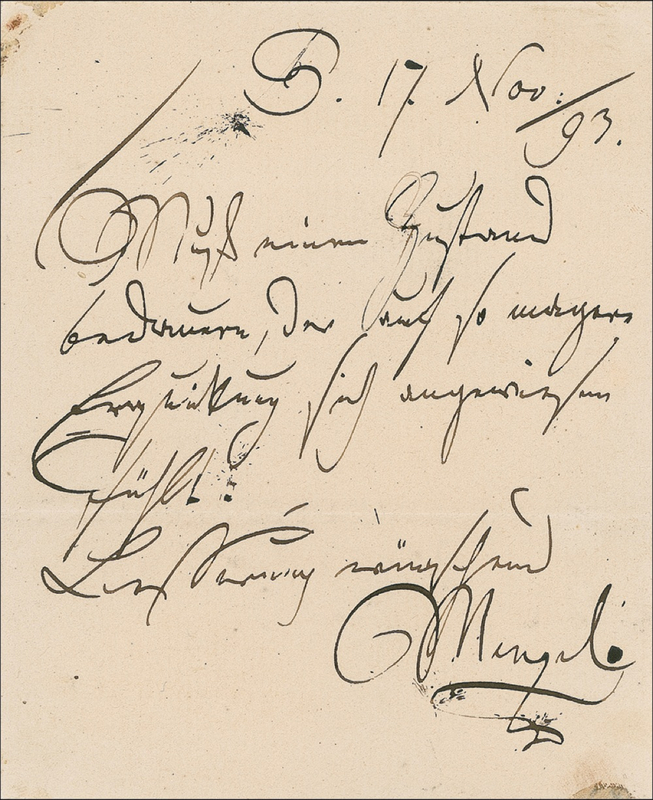 B. 17 Nov: /93.
Muß einen Zustand
bedauern, der auf so magere
Erquickung sich angewiesen
fühlt!
Besserung wünschend
Menzel.